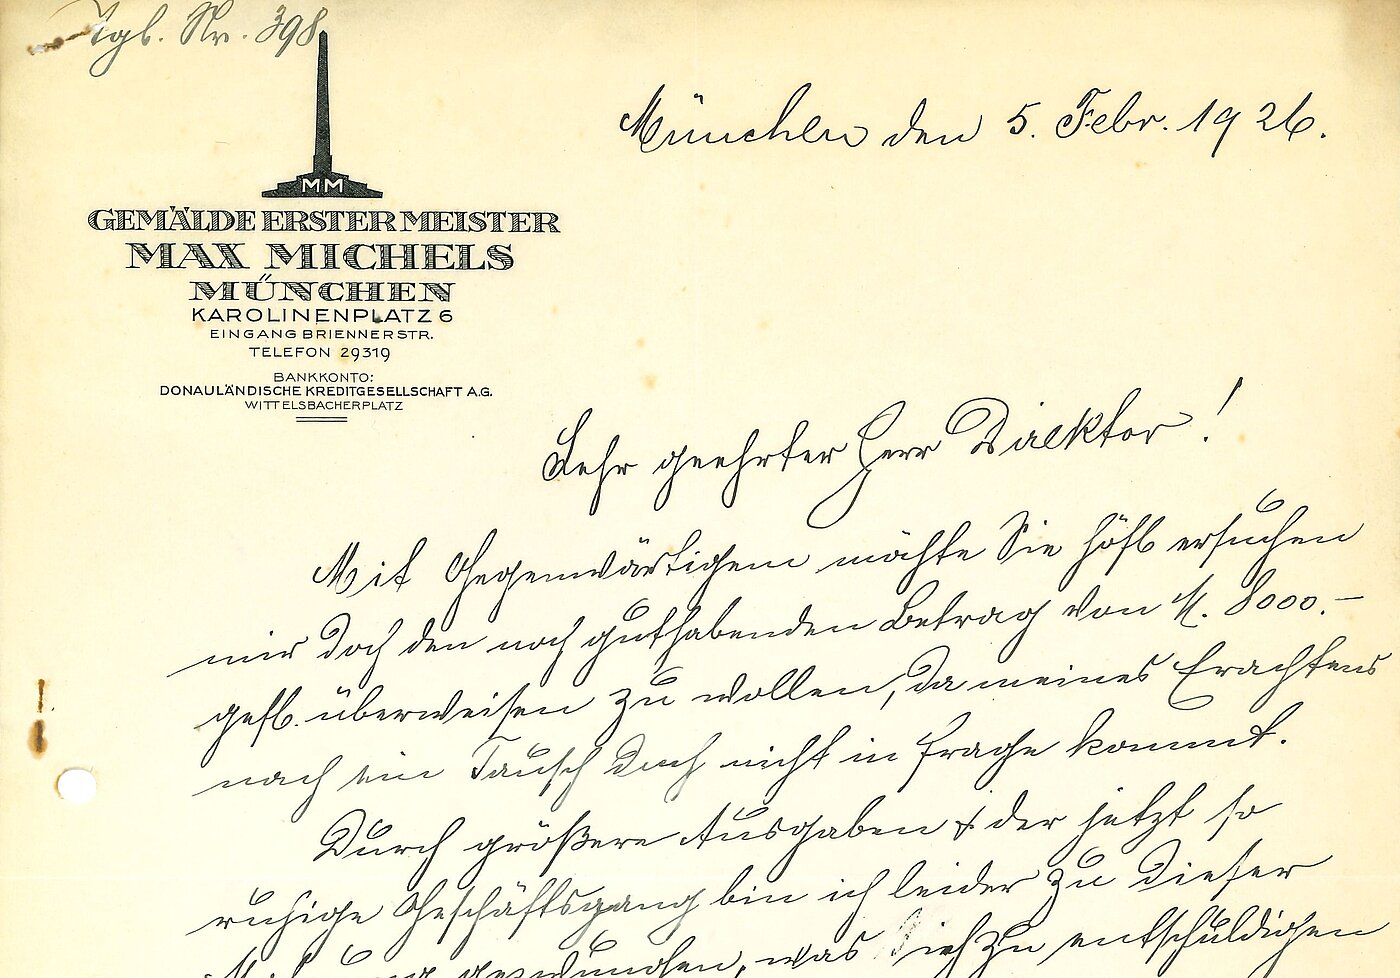 Tgl. Nr. 398
MM
GEMÄLDE ERSTER MEISTER
MAX MICHELS
MÜNCHEN
KAROLINENPLATZ 6
EINGANG BRIENNERSTR.
TELEFON 29319
BANKKONTO:
DONAULÄNDISCHE KREDITGESELLSCHAFT A.G.
WITTELSBACHERPLATZ
München den 5. Febr. 1926.
Sehr geehrter Herr Direktor!
Mit Gegenwärtigem möchte Sie höfl ersuchen
mir doch den noch guthabenden Betrag von M. 8000.–
gefl. überweisen zu wollen, da meines Erachtens
nach ein Tausch doch nicht in Frage kommt.
Durch größere Ausgaben & der jetzt so
ruhige Geschäftsgang bin ich leider zu dieser
gezwungen, was Sie zu entschuldigen